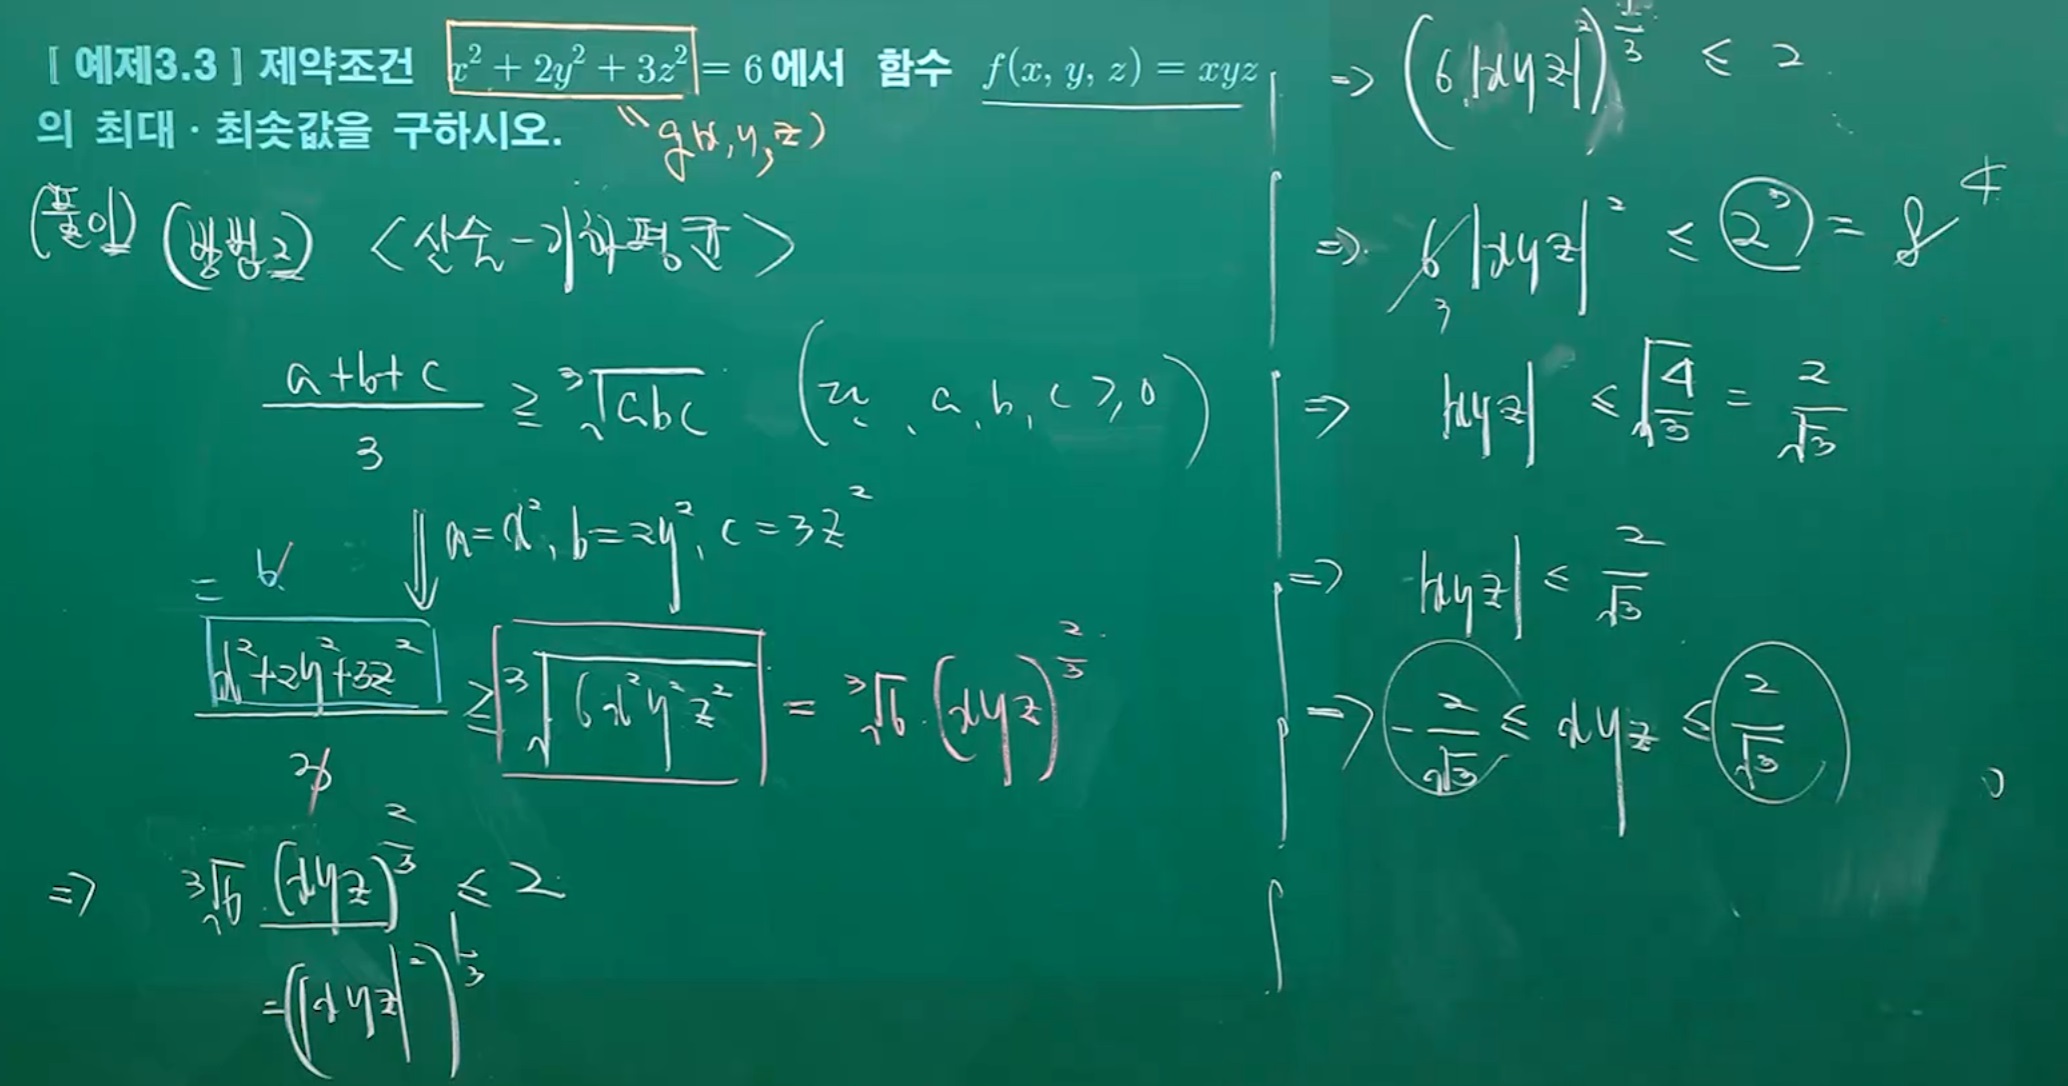 [ 예제3.3 ] 제약조건 x² + 2y² + 3z² = 6에서 함수 f(x, y, z) = xyz
의 최대 · 최솟값을 구하시오.
" g(x, y, z)
(풀이) (방법2) <산술-기하평균>
(a+b+c)/3 ≥ ³√(abc) ( , a, b, c ≥ 0 )
⇓ a = x², b = 2y², c = 3z²
= 6
(x²+2y²+3z²)/3 ≥ ³√(6x²y²z²) = ³√6 · (xyz)^(2/3)
2
⇒ ³√6 (xyz)^(2/3) ≤ 2
= (|xyz|²)^(1/3)
⇒ (6|xyz|²)^(1/3) ≤ 2
⇒ 6|xyz|² ≤ 2³ = 8 4
3
⇒ |xyz| ≤ √(4/3) = 2/√3
⇒ |xyz| ≤ 2/√3
⇒ -2/√3 ≤ xyz ≤ 2/√3